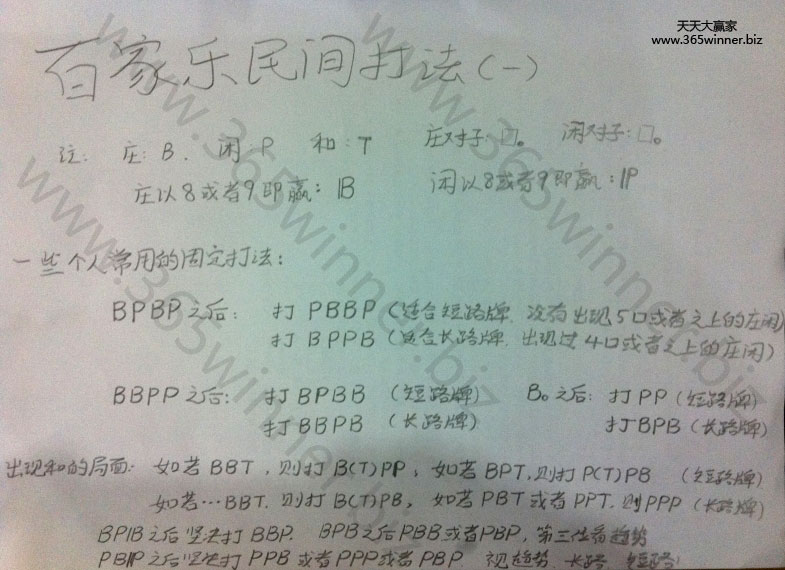 天天大赢家
www.365winner.biz
百家乐民间打法(一)
注: 庄:B. 闲:P 和:T 庄对子:□。 闲对子:□。
庄以8或者9即赢:|B 闲以8或者9即赢:|P
一些个人常用的固定打法:
BPBP之后: 打PBBP(适合短路牌.没有出现5口或者之上的庄闲)
打BPPB(适合长路牌.出现过4口或者之上的庄闲)
BBPP之后: 打BPBB (短路牌) B。之后: 打PP (短路牌)
打BBPB (长路牌) 打BPB (长路牌)
出现和的局面: 如若BBT,则打B(T)PP, 如若BPT,则打P(T)PB (短路牌)
如若…BBT.则打B(T)PB, 如若PBT或者PPT.则PPP (长路牌)
BP|B之后坚决打BBP. BPB之后PBB或者PBP,第三位看趋势
PB|P之后坚决打PPB或者PPP或者PBP 视趋势.长路.短路
www.365winner.biz
www.365winner.biz
www.365winner.biz